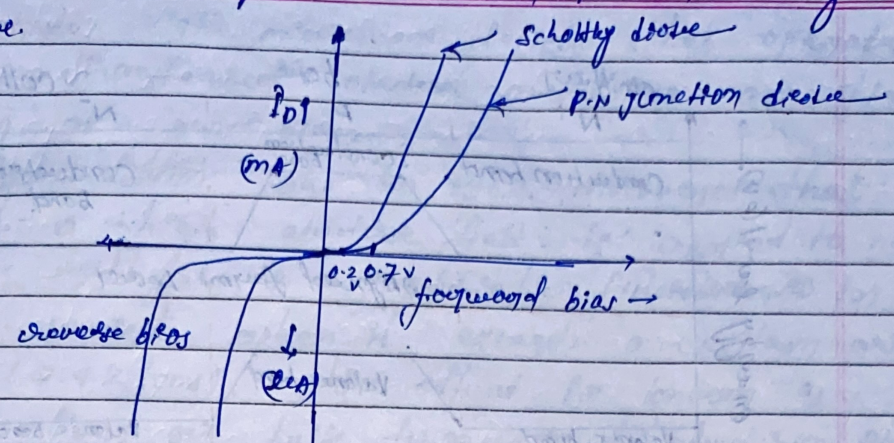 Schottky diode
P.N junction diode
ID↑
(mA)
0.2 0.7 V
V
forward bias →
reverse bias
↓
(μA)